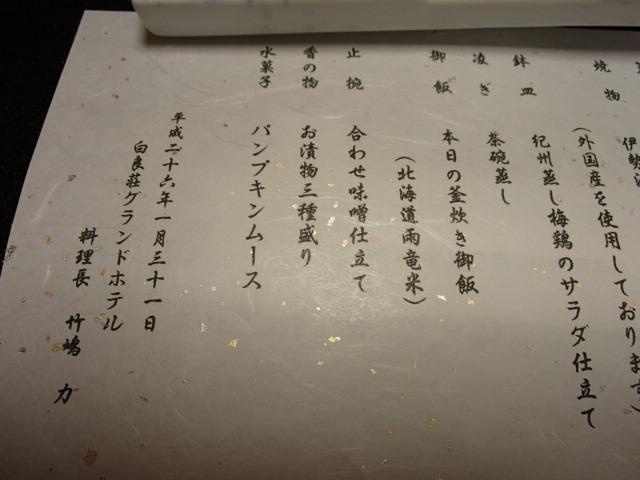 焼物
伊勢
(外国産を使用しております)
鉢皿 紀州蒸し梅鶏のサラダ仕立て
凌ぎ 茶碗蒸し
御飯 本日の釜炊き御飯
(北海道雨竜米)
止椀 合わせ味噌仕立て
香の物 お漬物三種盛り
水菓子 パンプキンムース
平成二十六年一月三十一日
白良荘グランドホテル
料理長 竹嶋 力